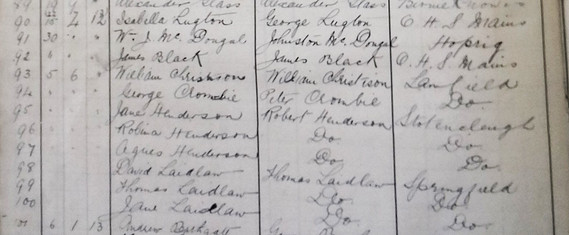 89 19 4 Alexander Glass Alexander Glass
90 15 2 12 Isabella Lugton George Lugton O. H. S Mains
91 30 " " Wm. J. McDougal Johnston McDougal Hoprig
92 James Black James Black O. H. S Mains
93 5 6 " William Christison William Christison Lawfield
94 " George Crombie Peter Crombie Do
95 Jane Henderson Robert Henderson
96 Robina Henderson Do Do
97 Agnes Henderson Do Do
98 David Laidlaw Thomas Laidlaw Springfield
99 Thomas Laidlaw Do Do
100 Jane Laidlaw Do Do
6 1 13 Andrew